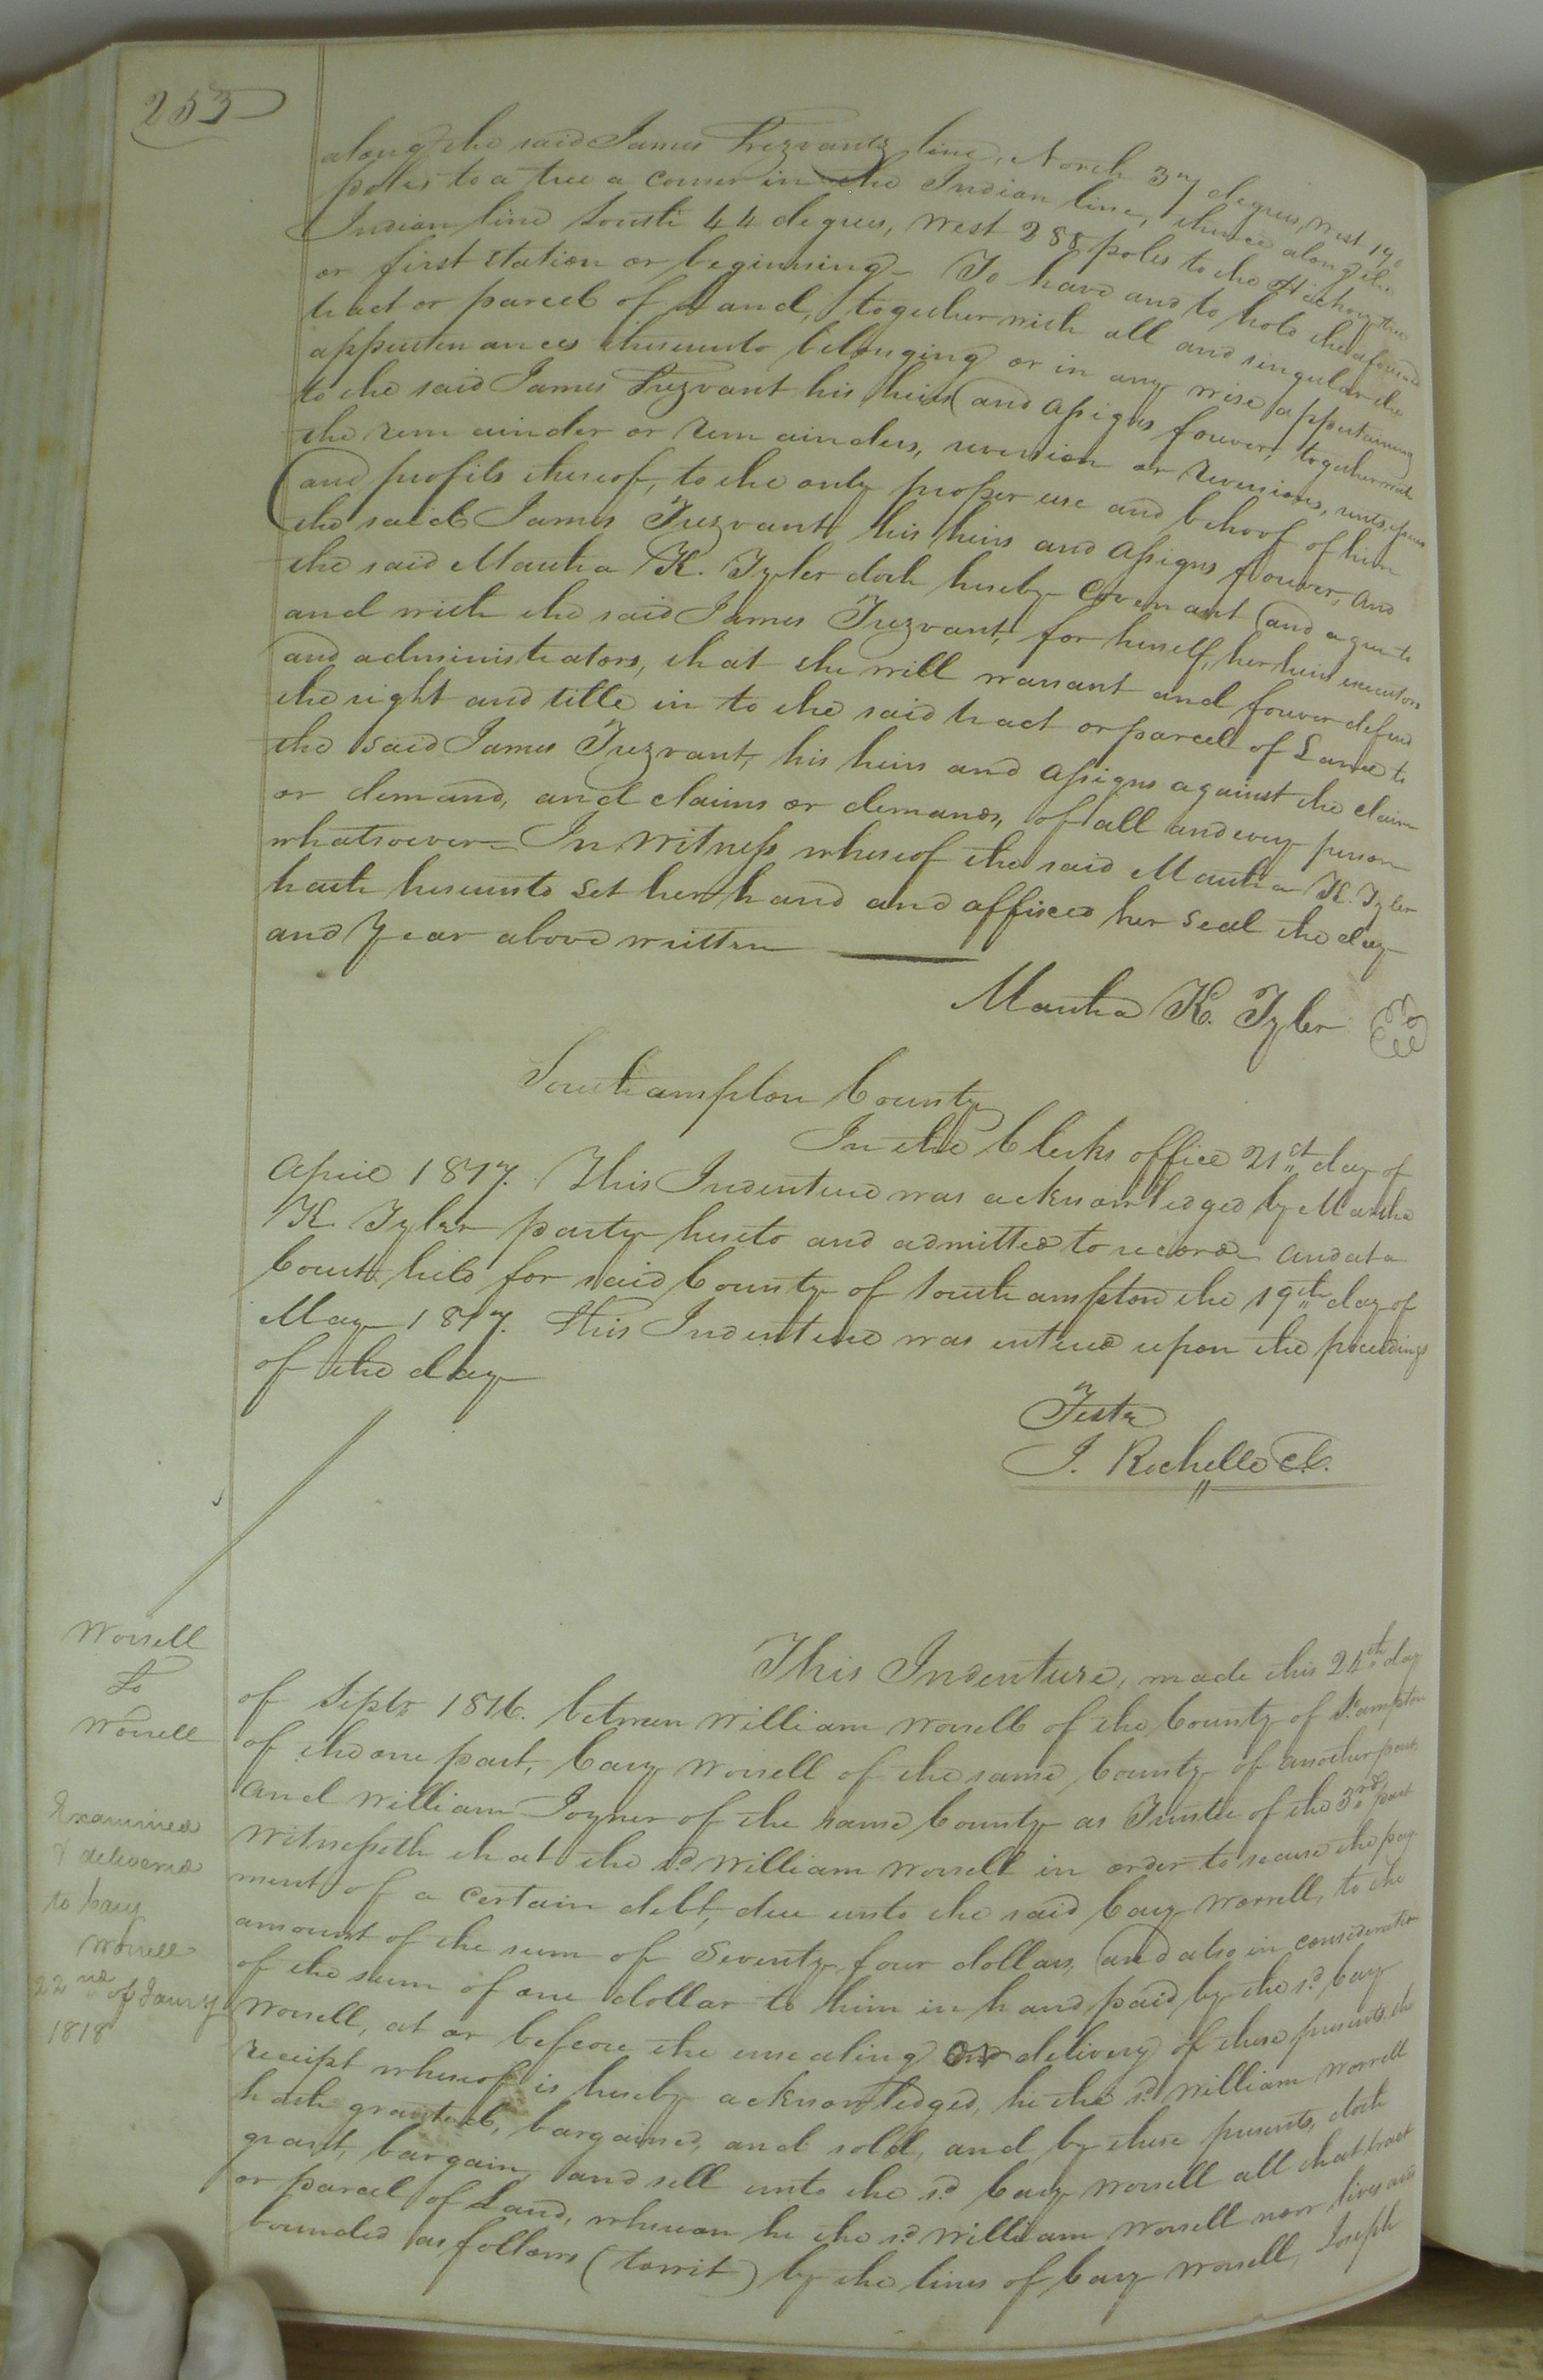 253
along the said James Trezvants line, North 37 degrees, West 190
poles to a tree a corner in the Indian line, thence along the
Indian line South 44 degrees, West 288 poles to the tree
or first station or beginning. To have and to hold the aforesaid
tract or parcel of Land, together with all and singular the
appurtenances thereunto belonging or in any wise appertaining
to the said James Trezvant his heirs and assigns forever, together with
the remainder or remainders, reversion or reversions, rents, issues
and profits thereof, to the only proper use and behoof of him
the said James Trezvant his heirs and assigns forever, and
the said Martha K. Tyler doth hereby Covenant and agree to
and with the said James Trezvant for herself, her heirs executors
and administrators, that she will warrant and forever defend
the right and title in to the said tract or parcel of Land to
the said James Trezvant, his heirs and assigns against the claim
or demand, and claims or demands, of all and every person
whatsoever = In Witness whereof the said Martha K. Tyler
hath hereunto set her hand and affixed her seal the day
and Year above written
Martha K. Tyler
Southampton County
In the Clerks office 21st day of
April 1817. This Indenture was acknowledged by Martha
K. Tyler party hereto and admitted to record and at a
Court held for said County of Southampton the 19th day of
May 1817. This Indenture was entered upon the proceedings
of the day
Teste
J. Rochelle Cl.
Worrell
To
Worrell
This Indenture, made this 24th day
of Septr 1816. between William Worrell of the County of So.ampton
of the one part, Cary Worrell of the same County of another part
and William Joyner of the same County as Trustee of the 3rd part
Witnesseth that the sd William Worrell in order to secure the pay
ment of a certain debt, due unto the said Cary Worrell, to the
amount of the sum of Seventy four dollars, and also in consideration
of the sum of one dollar to him in hand paid by the sd Cary
Worrell, at or before the ensealing and delivery of these presents, the
receipt whereof is hereby acknowledged, he the sd William Worrell
hath granted, bargained, and sold, and by these presents, doth
grant, bargain, and sell unto the sd Cary Worrell all that tract
or parcel of Land, whereon he the sd William Worrell now lives and
bounded as follows (towit) by the lines of Cary Worrell, Joseph
Examined
& delivered
to Cary
Worrell
22nd of Jany
1818